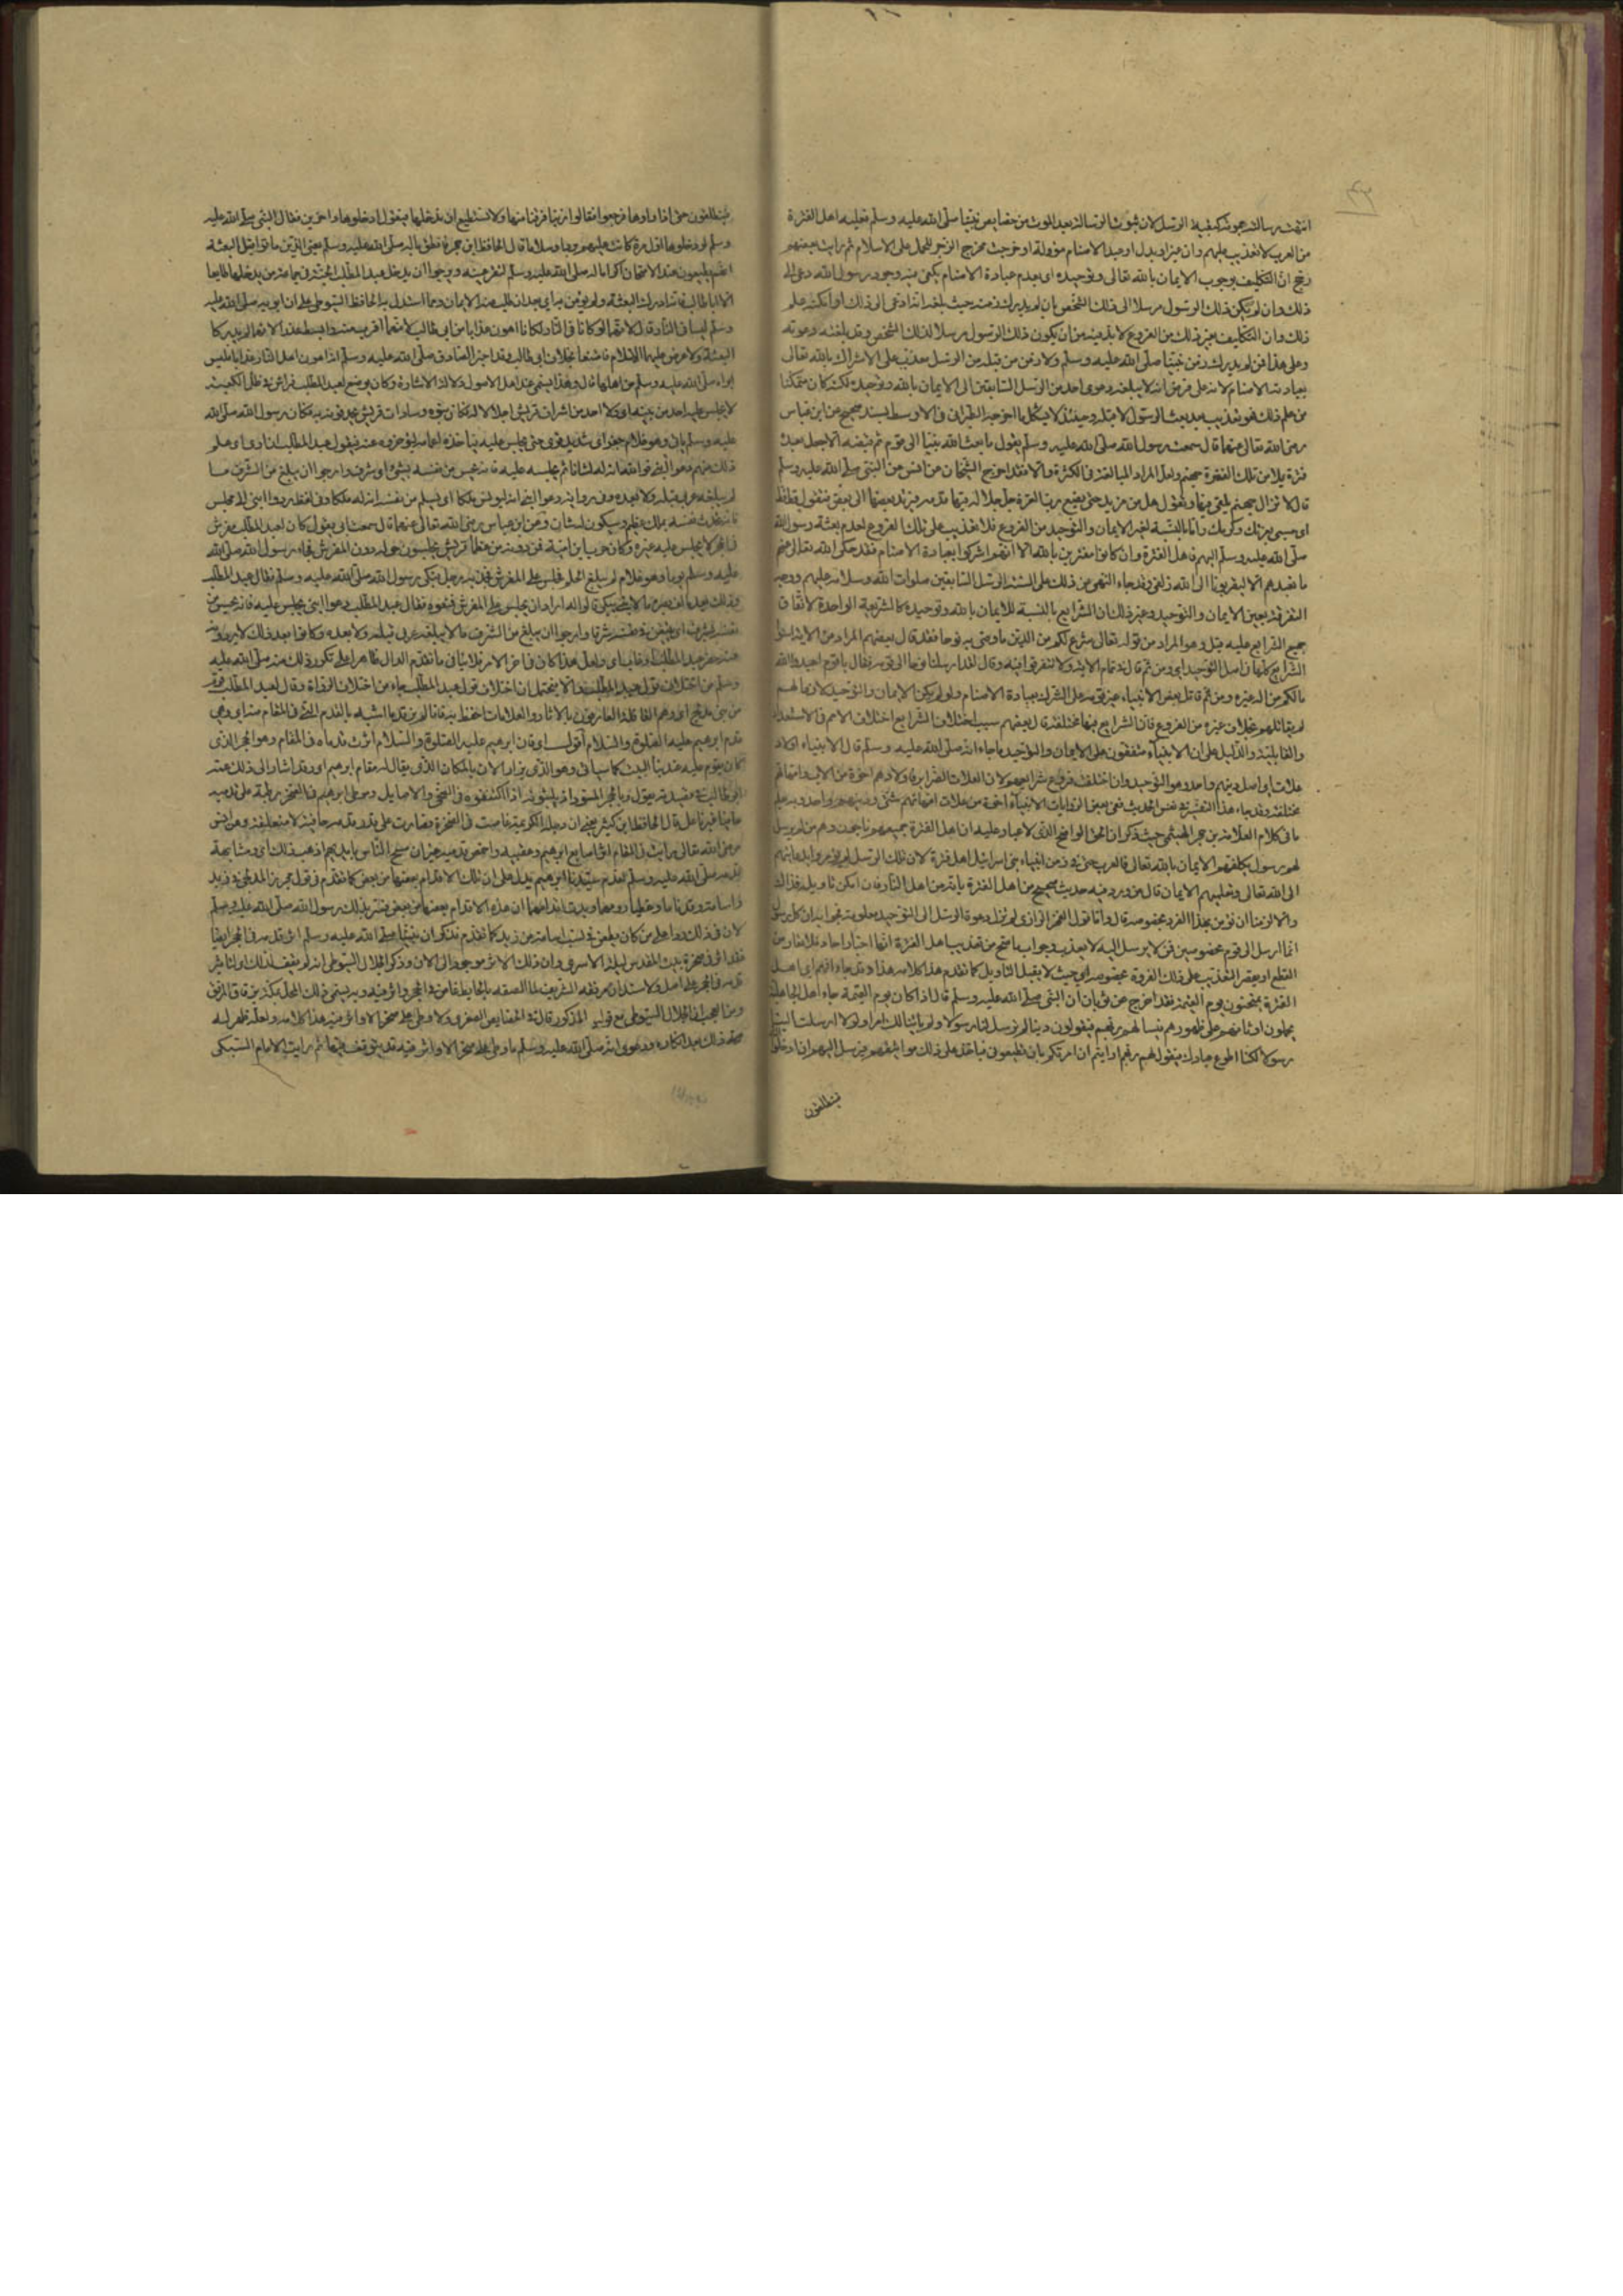 انتهت رسالته بموته كبقية الرسل لان ثبوت الرسالة بعد الموت من خصايص نبينا صلى الله عليه وسلم فعليه اهل الفترة
من العرب لا تعذيب عليهم وان غيروا وبدلوا وعبدوا الاصنام والاحاديث مؤولة او خرجت مخرج الزجر للحمل على الاسلام ثم رايت بعضهم
رجح ان التكليف بوجوب الايمان بالله تعالى وتوحيده اى بعدم عبادة الاصنام يكفى فيه وجود رسول الله دعى الى
ذلك وان لم يكن ذلك الرسول مرسلا الى ذلك الشخص بان لم يدرك زمنه حيث بلغه انه دعى الى ذلك او امكنه علم
ذلك وان التكليف بغير ذلك من الفروع لا بد فيه من ان يكون ذلك الرسول مرسلا لذلك الشخص وقد بلغته دعوته
وعلى هذا فمن لم يدرك زمن نبينا صلى الله عليه وسلم ولا زمن من قبله من الرسل معذب على الاشراك بالله تعالى
بعبادته الاصنام لانه على فرض ان لا يبلغه دعوى احد من الرسل السابقين الى الايمان بالله وتوحيده لكنه كان متمكنا
من علم ذلك فهو تعذيب بعد بعث الرسول لا قبله وحينئذ لا يشكل ما اخرجه الطبرانى فى الاوسط بسند صحيح عن ابن عباس
رضى الله تعالى عنهما قال سمعت رسول الله صلى الله عليه وسلم يقول ما بعث الله نبيا الى قوم ثم قبضه الا جعل بعده
فترة يملا من تلك الفترة جهنم ولعل المراد المبالغة فى الكثرة والا فقد اخرج الشيخان عن انس عن النبى صلى الله عليه وسلم
قال لا تزال جهنم يلقى فيها وتقول هل من مزيد حتى يضع رب العزة جل جلاله فيها قدمه فيزيد بعضها الى بعض فتقول قط قط
اى حسبى بعزتك وكرمك واما بالنسبة لغير الايمان والتوحيد من الفروع فلا تعذيب على تلك الفروع لعدم بعثة رسول الله
صلى الله عليه وسلم اليهم فاهل الفترة وان كانوا مقرين بالله الا انهم اشركوا بعبادة الاصنام فقد حكى الله تعالى عنهم
ما نعبدهم الا ليقربونا الى الله زلفى وقد جاء النهى عن ذلك على السنة الرسل السابقين صلوات الله وسلامه عليهم ووجه
التفرقة بين الايمان والتوحيد وغير ذلك ان الشرايع بالنسبة للايمان بالله وتوحيده كالشريعة الواحدة لاتفاق
جميع الشرايع عليه قيل وهو المراد من قوله تعالى شرع لكم من الدين ما وصى به نوحا فقد قال بعضهم المراد من الاية استوا
الشرايع كلها فى اصل التوحيد اى ومن ثم قال فى تمام الاية ولا تتفرقوا فيه وقال لقد ارسلنا نوحا الى قومه فقال يا قوم اعبدوا الله
ما لكم من اله غيره ومن ثم قاتل بعض الانبياء غير قومه على الشرك بعبادة الاصنام ولو لم يكن الايمان والتوحيد لازما لهم
لم يقاتلهم بخلاف غيره من الفروع فان الشرايع فيها مختلفة قال بعضهم سبب اختلاف الشرايع اختلاف الامم فى الاستعداد
والقابلية والدليل على ان الانبياء متفقون على الايمان والتوحيد ما جاء انه صلى الله عليه وسلم قال الانبياء اولاد
علات اى اصل دينهم واحد وهو التوحيد وان اختلفت فروع شرايعهم لان العلات الضراير فاولادهم اخوة من الاب وامهاتهم
مختلفة وقد جاء هذا التفسير فى نفس الحديث ففى بعض الروايات الانبياء اخوة من علات امهاتهم شتى ودينهم واحد وبه علم
ما فى كلام العلامة بن حجر الهيثمى حيث ذكر ان الحق الواضح الذى لا غبار عليه ان اهل الفترة جميعهم ناجون وهم من لم يرسل
لهم رسول يكلفهم الايمان بالله تعالى فالعرب حتى فى زمن انبياء بنى اسرائيل اهل فترة لان تلك الرسل لم يؤمروا بدعايتهم
الى الله تعالى وتعليمهم الايمان قال من ورد فيه حديث صحيح من اهل الفترة بانه من اهل النار فان امكن تاويله فذاك
والا لزمنا ان نؤمن بهذا الفرد بخصوصه قال واما قول الفخر الرازى لم تزل دعوة الرسل الى التوحيد معلومة فجوابه ان كل رسول
انما ارسل لقوم مخصوصين فمن لم يرسل اليه لا يعذب وجواب ما صح من تعذيب اهل الفترة انها اخبار احاد فلا تعارض
القطع او يقصر التعذيب على ذلك الفرد بخصوصه اى حيث لا يقبل التاويل كما تقدم هذا كلامه هذا وقد جاء انهم اى اهل
الفترة يمتحنون يوم القيمة فقد اخرج عن ثوبان ان النبى صلى الله عليه وسلم قال اذا كان يوم القيمة جاء اهل الجاهلية
يحملون اوثانهم على ظهورهم فيسالهم ربهم فيقولون ربنا لم ترسل لنا رسولا ولم ياتنا لك امر ولو ارسلت الينا
رسولا لكنا اطوع عبادك فيقول لهم ربهم ارايتم ان امرتكم بامر تطيعونى فياخذ على ذلك مواثيقهم فيرسل اليهم ان ادخلوا
فينطلقون
فينطلقون حتى اذا راوها فرجعوا فقالوا ربنا فرقنا منها ولا نستطيع ان ندخلها فيقول ادخلوها داخرين فقال النبى صلى الله عليه
وسلم لو دخلوها اول مرة كانت عليهم بردا وسلاما قال الحافظ ابن حجر فالظن بآله صلى الله عليه وسلم يعنى الذين ماتوا قبل البعثة
انهم يطيعون عند الامتحان اكراما له صلى الله عليه وسلم لتقر عينه ونرجوا ان يدخل عبد المطلب الجنة فى جماعة من يدخلها طايعا
الا ابا طالب فانه ادرك البعثة ولم يؤمن به اى بعد ان طلب منه الايمان ومما استدل به الحافظ السيوطى على ان ابويه صلى الله عليه
وسلم ليسا فى النار قال لانهما لو كانا فى النار لكانا اهون عذابا من ابى طالب لانهما اقرب منه وابسط عذرا لانهما لم يدركا
البعثة ولا عرض عليهما الاسلام فامتنعا بخلاف ابى طالب وقد اخبر الصادق صلى الله عليه وسلم انه اهون اهل النار عذابا فليس
ابواه صلى الله عليه وسلم من اهلها قال وهذا يسمى عند اهل الاصول دلالة الاشارة وكان يوضع لعبد المطلب فراش فى ظل الكعبة
لا يجلس عليه احد من بنيه اى ولا احد من اشراف قريش اجلالا له فكان بنوه وسادات قريش يحدقون به فكان رسول الله صلى الله
عليه وسلم ياتى وهو غلام جفر اى شديد قوى حتى يجلس عليه فياخذه اعمامه ليؤخروه عنه فيقول عبد المطلب اذا راى اى علم
ذلك منهم دعوا ابنى فوالله ان له لشانا ثم يجلسه عليه فانه يحس من نفسه بشىء اى بشرف وارجوا ان يبلغ من الشرف ما
لم يبلغه عربى قبله ولا بعده وفى رواية دعوا ابنى انه ليونس ملكا اى يعلم من نفسه ان له ملكا وفى لفظ ردوا ابنى الى مجلس
فانه تحدثه نفسه بملك عظيم وسيكون له شان وعن ابن عباس رضى الله تعالى عنهما قال سمعت ابى يقول كان لعبد المطلب مفرش
فى الحجر لا يجلس عليه غيره وكان حرب بن امية فمن دونه من عظماء قريش يجلسون حوله دون المفرش فجاء رسول الله صلى الله
عليه وسلم يوما وهو غلام لم يبلغ الحلم فجلس على المفرش فجذبه رجل فبكى رسول الله صلى الله عليه وسلم فقال عبد المطلب
وذلك بعد ما كف بصره ما لابنى يبكى قالوا له اراد ان يجلس على المفرش فمنعوه فقال عبد المطلب دعوا ابنى يجلس عليه فانه يحس من
نفسه بشرف اى يتيقن فى نفسه شرفا وارجوا ان يبلغ من الشرف ما لا يبلغه عربى قبله ولا بعده وكانوا بعد ذلك لا يردونه
عنه حضر عبد المطلب او غاب اى ولعل هذا كان فى اخر الامر فلا ينافى ما تقدم الدال ظاهرا على تكرر ذلك منه صلى الله عليه
وسلم من اختلاف قول عبد المطلب والا يحتمل ان اختلاف قول عبد المطلب جاء من اختلاف الرواة وقال لعبد المطلب قوم
من بنى مدلج اى وهم القافة والعارفون بالاثار والعلامات احتفظ به فانا لم نر قدما اشبه بالقدم التى فى المقام منه اى وهى
قدم ابرهيم عليه الصلوة والسلام اقول اى فان ابرهيم عليه الصلوة والسلام اثرت قدماه فى المقام وهو الحجر الذى
كان يقوم عليه عند بنا البيت كما سياتى وهو الذى يزار الان بالمكان الذى يقال له مقام ابرهيم اى وقد اشار الى ذلك عمه
ابو طالب فى قصيدته بقوله وبالحجر المسود اذ يلثمونه اذا اكتنفوه فى الضحى والاصايل وموطى ابرهيم فى الصخر رطبة على قدميه
حافيا غير ناعل قال الحافظ ابن كثير يعنى ان رجله الكريمة غاصت فى الصخرة فصارت على قدر قدمه حافية لا منتعلة وعن انس
رضى الله تعالى رايت فى المقام اثر اصابع ابرهيم وعقبيه واخمص قدميه غير ان مسح الناس بايديهم اذهب ذلك اى ومشابهة
قدمه صلى الله عليه وسلم لقدم سيدنا ابرهيم يدل على ان تلك الاقدام بعضها من بعض كما تقدم فى قول مجزز المدلجى فى زيد
واسامة وقد ناما وغطيا رؤسهما وبدت اقدامهما ان هذه الاقدام بعضها من بعض فسر بذلك رسول الله صلى الله عليه وسلم
لان فى ذلك ردا على من كان يطعن فى نسب اسامة من زيد كما تقدم وذكر ان نبينا صلى الله عليه وسلم اثر قدمه فى الحجر ايضا
فقد اثر فى صخرة بيت المقدس ليلة الاسرى وان ذلك الاثر موجود الى الان وذكر الجلال السيوطى انه لم يقف لذلك اى لتاثير
قدمه فى الحجر على اصل ولا سند ان مرفقه الشريف لما الصقه بالحايط غاص فى الحجر واثر فيه وبه يسمى ذلك المحل بمكة بزقاق المرفق
ومن العجب ان الجلال السيوطى مع قوله المذكور قال فى الخصايص الصغرى ولا وطى على صخر الا واثر فيه هذا كلامه ولعله ظهر له
صحة ذلك بعد انكاره ودعوى انه صلى الله عليه وسلم ما وطى على صخر الا واثر فيه قد يتوقف فيها ثم رايت الامام السبكى